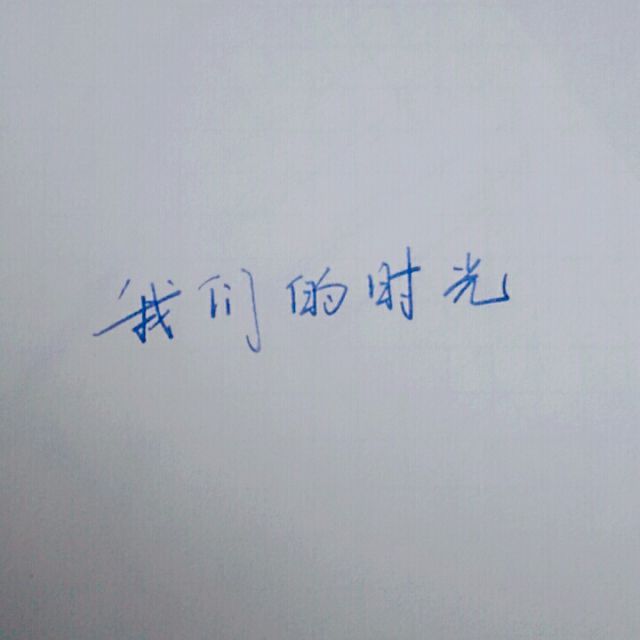 我们的时光